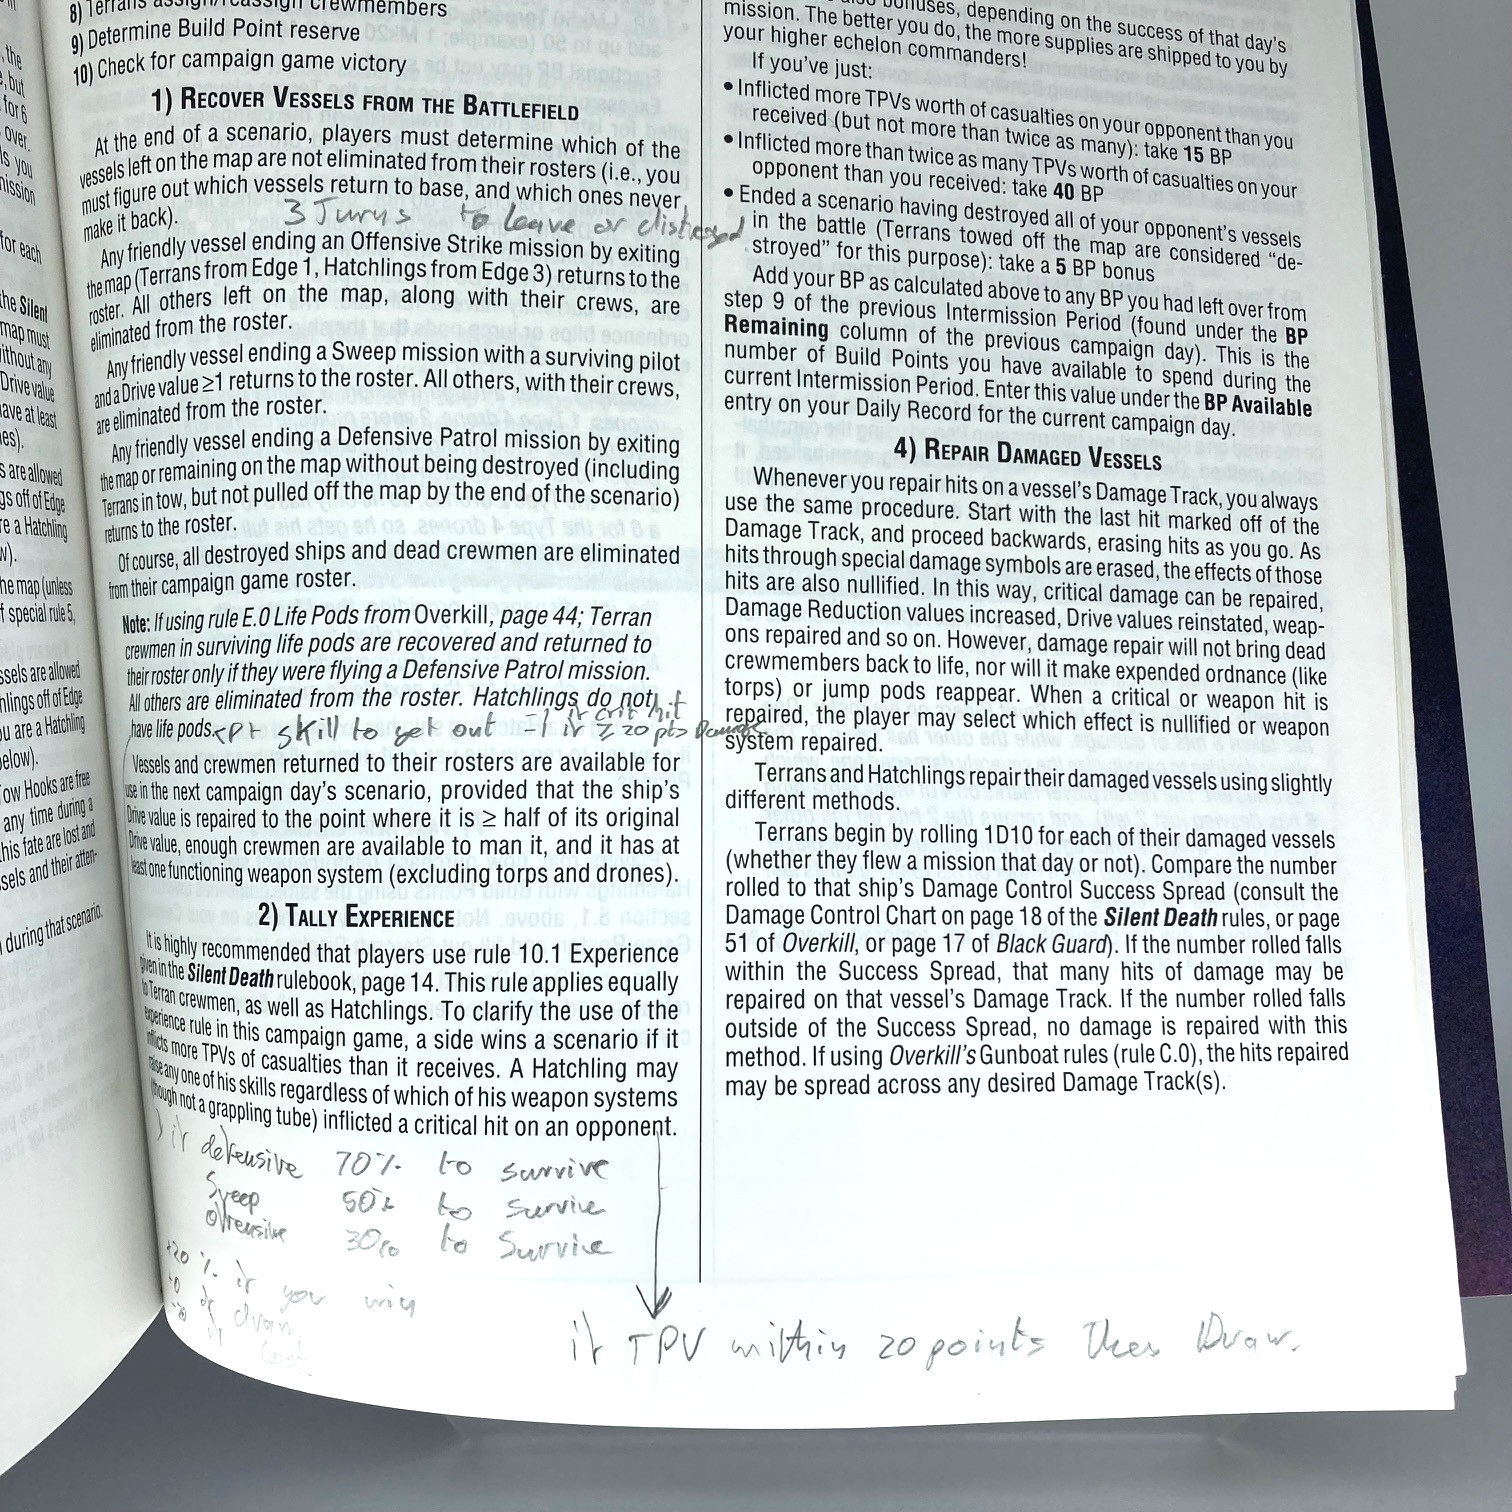 the
, but
for 6
over.
ls you
mission
for each
the Silent
map must
ithout any
Drive value
ave at least
es).
s are allowed
gs off of Edge
re a Hatchling
w).
he map (unless
f special rule 5,
ssels are allowed
hlings off of Edge
u are a Hatchling
elow).
ow Hooks are free
any time during a
his fate are lost and
ssels and their atten-
during that scenario.
8) Terrans assign/reassign crewmembers
9) Determine Build Point reserve
10) Check for campaign game victory
1) RECOVER VESSELS FROM THE BATTLEFIELD
At the end of a scenario, players must determine which of the
vessels left on the map are not eliminated from their rosters (i.e., you
must figure out which vessels return to base, and which ones never
make it back).
3 Turns to leave or distroyed
Any friendly vessel ending an Offensive Strike mission by exiting
the map (Terrans from Edge 1, Hatchlings from Edge 3) returns to the
roster. All others left on the map, along with their crews, are
eliminated from the roster.
Any friendly vessel ending a Sweep mission with a surviving pilot
and a Drive value ≥1 returns to the roster. All others, with their crews,
are eliminated from the roster.
Any friendly vessel ending a Defensive Patrol mission by exiting
the map or remaining on the map without being destroyed (including
Terrans in tow, but not pulled off the map by the end of the scenario)
returns to the roster.
Of course, all destroyed ships and dead crewmen are eliminated
from their campaign game roster.
Note: If using rule E.0 Life Pods from Overkill, page 44; Terran
crewmen in surviving life pods are recovered and returned to
their roster only if they were flying a Defensive Patrol mission.
All others are eliminated from the roster. Hatchlings do not
have life pods.
if crit hit
skill to get out -1 if ≥ 20 pts Damage
Vessels and crewmen returned to their rosters are available for
use in the next campaign day's scenario, provided that the ship's
Drive value is repaired to the point where it is ≥ half of its original
Drive value, enough crewmen are available to man it, and it has at
least one functioning weapon system (excluding torps and drones).
2) TALLY EXPERIENCE
It is highly recommended that players use rule 10.1 Experience
given in the Silent Death rulebook, page 14. This rule applies equally
to Terran crewmen, as well as Hatchlings. To clarify the use of the
experience rule in this campaign game, a side wins a scenario if it
inflicts more TPVs of casualties than it receives. A Hatchling may
raise any one of his skills regardless of which of his weapon systems
(though not a grappling tube) inflicted a critical hit on an opponent.
if defensive 70% to survive
Sweep 50% to survive
offensive 30% to Survive
+20 % if you win
+0 if draw
-20 if lost
if TPV within 20 points then Draw.
bonuses, depending on the success of that day's
mission. The better you do, the more supplies are shipped to you by
your higher echelon commanders!
If you've just:
• Inflicted more TPVs worth of casualties on your opponent than you
received (but not more than twice as many): take 15 BP
• Inflicted more than twice as many TPVs worth of casualties on your
opponent than you received: take 40 BP
• Ended a scenario having destroyed all of your opponent's vessels
in the battle (Terrans towed off the map are considered "de-
stroyed" for this purpose): take a 5 BP bonus
Add your BP as calculated above to any BP you had left over from
step 9 of the previous Intermission Period (found under the BP
Remaining column of the previous campaign day). This is the
number of Build Points you have available to spend during the
current Intermission Period. Enter this value under the BP Available
entry on your Daily Record for the current campaign day.
4) REPAIR DAMAGED VESSELS
Whenever you repair hits on a vessel's Damage Track, you always
use the same procedure. Start with the last hit marked off of the
Damage Track, and proceed backwards, erasing hits as you go. As
hits through special damage symbols are erased, the effects of those
hits are also nullified. In this way, critical damage can be repaired,
Damage Reduction values increased, Drive values reinstated, weap-
ons repaired and so on. However, damage repair will not bring dead
crewmembers back to life, nor will it make expended ordnance (like
torps) or jump pods reappear. When a critical or weapon hit is
repaired, the player may select which effect is nullified or weapon
system repaired.
Terrans and Hatchlings repair their damaged vessels using slightly
different methods.
Terrans begin by rolling 1D10 for each of their damaged vessels
(whether they flew a mission that day or not). Compare the number
rolled to that ship's Damage Control Success Spread (consult the
Damage Control Chart on page 18 of the Silent Death rules, or page
51 of Overkill, or page 17 of Black Guard). If the number rolled falls
within the Success Spread, that many hits of damage may be
repaired on that vessel's Damage Track. If the number rolled falls
outside of the Success Spread, no damage is repaired with this
method. If using Overkill's Gunboat rules (rule C.0), the hits repaired
may be spread across any desired Damage Track(s).